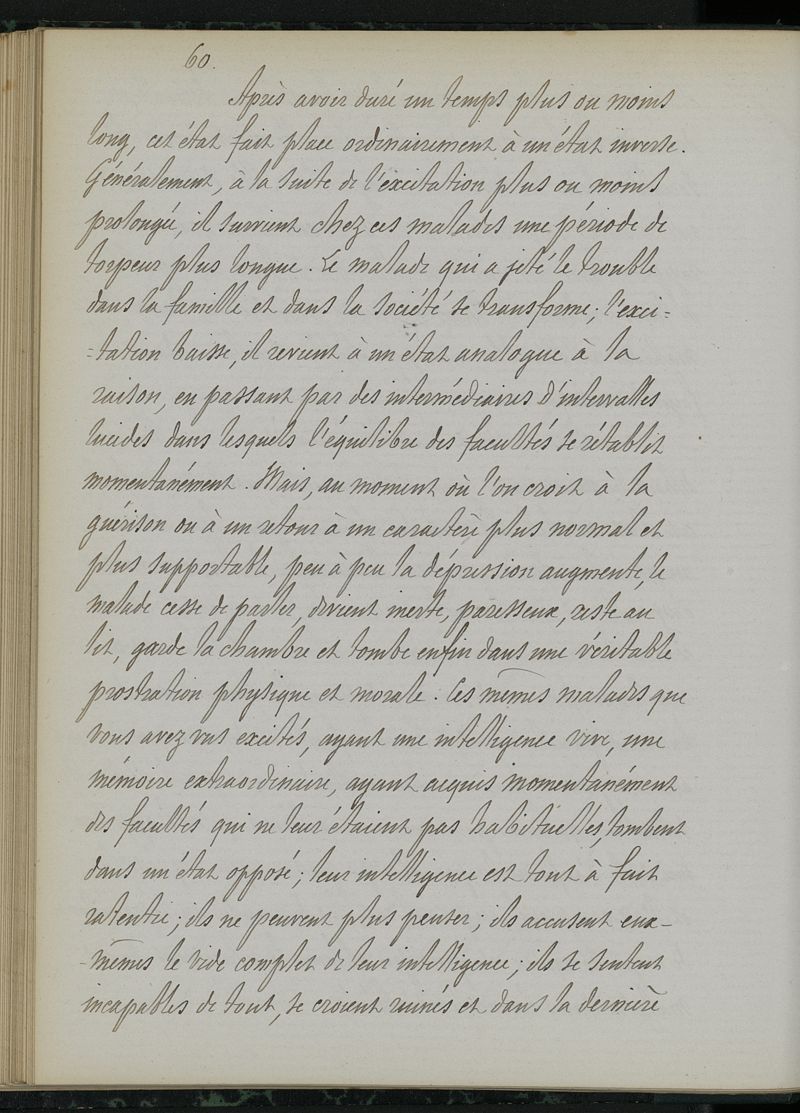 60.
Après avoir duré un temps plus ou moins
long, cet état fait place ordinairement à un état inverse.
Généralement, à la suite de l'excitation plus ou moins
prolongée, il survient chez ces malades une période de
torpeur plus longue. Le malade qui a jeté le trouble
dans la famille et dans la société se transforme; l'exci-
-tation baisse, il revient à un état analogue à la
raison, en passant par des intermédiaires d'intervalles
lucides dans lesquels l'équilibre des facultés se rétablit
momentanément. Mais, au moment où l'on croit à la
guérison ou à un retour à un caractère plus normal et
plus supportable, peu à peu la dépression augmente, le
malade cesse de parler, devient inerte, paresseux, reste au
lit, garde la chambre et tombe enfin dans une véritable
prostration physique et morale. Ces mêmes malades que
vous avez vus excités, ayant une intelligence vive, une
mémoire extraordinaire, ayant acquis momentanément
des facultés qui ne leur étaient pas habituelles, tombent
dans un état opposé; leur intelligence est tout à fait
ralentie; ils ne peuvent plus penser; ils accusent eux-
-mêmes le vide complet de leur intelligence; ils se sentent
incapables de tout, se croient ruinés et dans la dernière